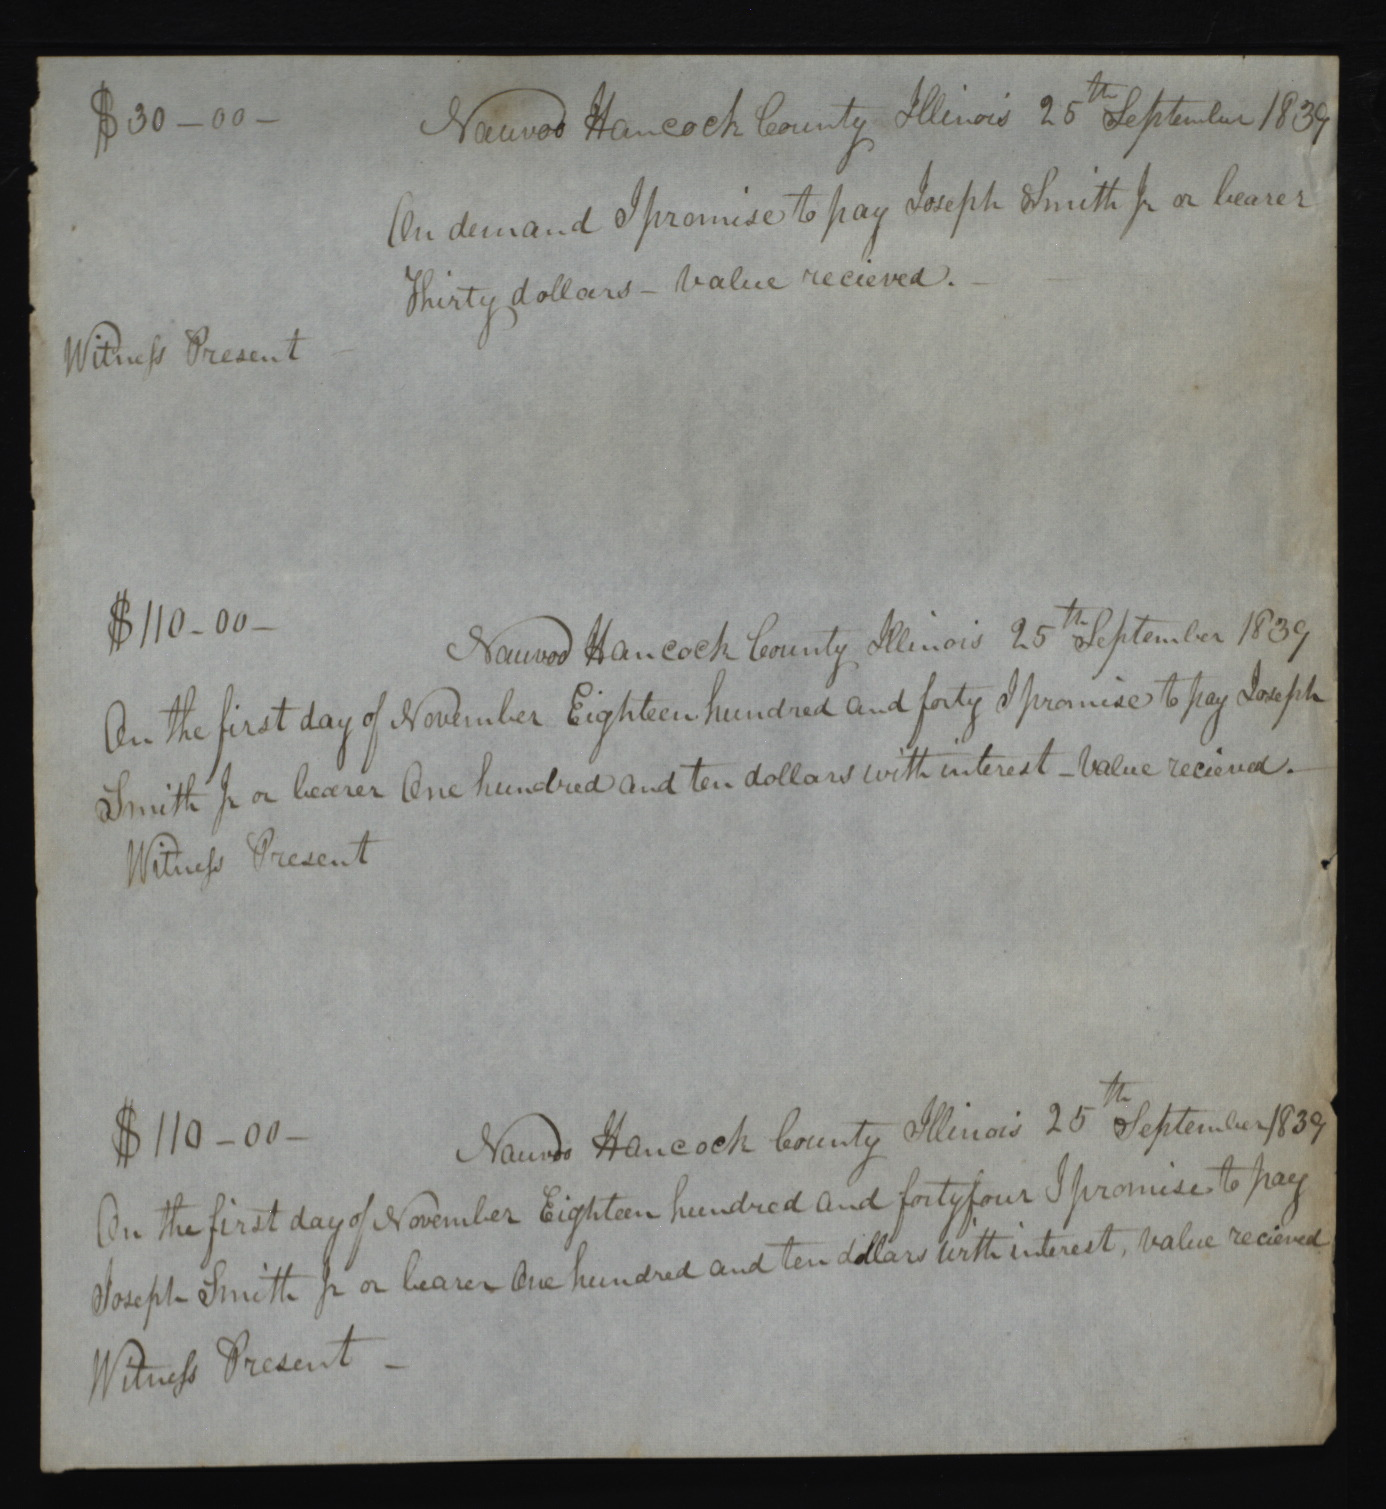 $30-00- Nauvoo Hancock County Illinois 25th September 1839
On demand I promise to pay Joseph Smith Jr or bearer
Thirty dollars - value recieved. -
Witness Present -
$110-00- Nauvoo Hancock County Illinois 25th September 1839
On the first day of November Eighteen hundred and forty I promise to pay Joseph
Smith Jr or bearer One hundred and ten dollars with interest - value recieved. -
Witness Present
$110-00- Nauvoo Hancock County Illinois 25th September 1839
On the first day of November Eighteen hundred and forty four I promise to pay
Joseph Smith Jr or bearer One hundred and ten dollars with interest, value recieved
Witness Present -